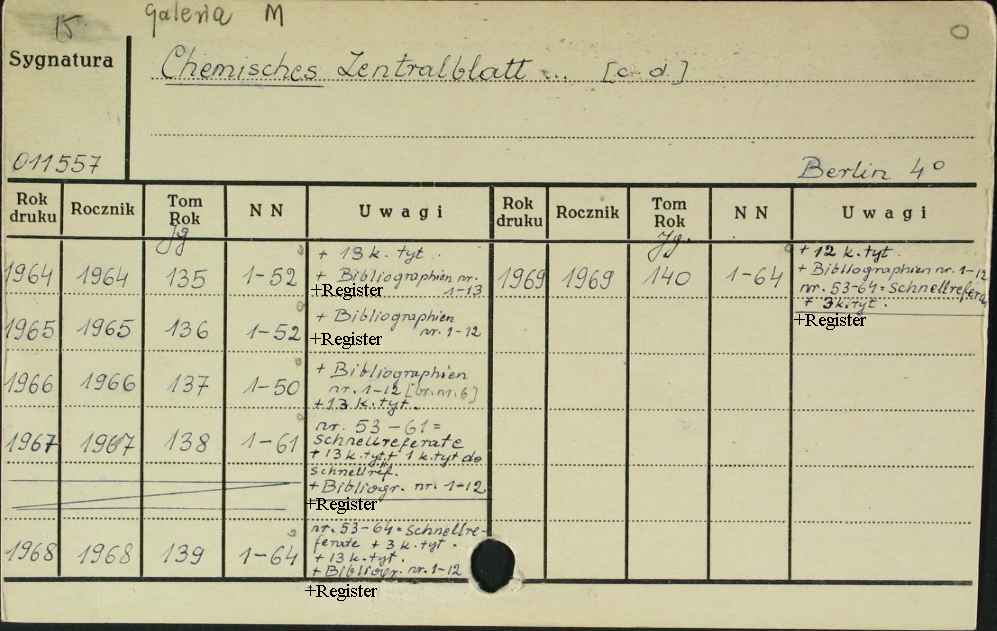 15 galeria M
Sygnatura
Chemisches Zentralblatt ... [c. d.]
011557
Berlin 4°
Rok druku Rocznik Tom Rok Jg N N Uwagi Rok druku Rocznik Tom Rok Jg. N N Uwagi
1964 1964 135 1-52 + 13 k. tyt
+ Bibliographien nr.
1-13
+Register
1965 1965 136 1-52 + Bibliographien
nr. 1-12
+Register
1966 1966 137 1-50 + Bibliographien
nr. 1-12 [br. nr. 6]
+13 k. tyt.
1967 1967 138 1-61 nr. 53-61=
schnellreferate
+ 13 k. tyt. + 1 k. tyt do
schnellref.
+ Bibliogr. nr. 1-12
+Register
1968 1968 139 1-64 nr. 53-64=Schnellre-
ferate + 3 k. tyt.
+ 13 k. tyt.
+ Bibliogr. nr. 1-12
+Register
1969 1969 140 1-64 + 12 k. tyt
+ Bibliographien nr. 1-12
nr. 53-64=Schnellrefera
+ 3k. tyt.
+Register